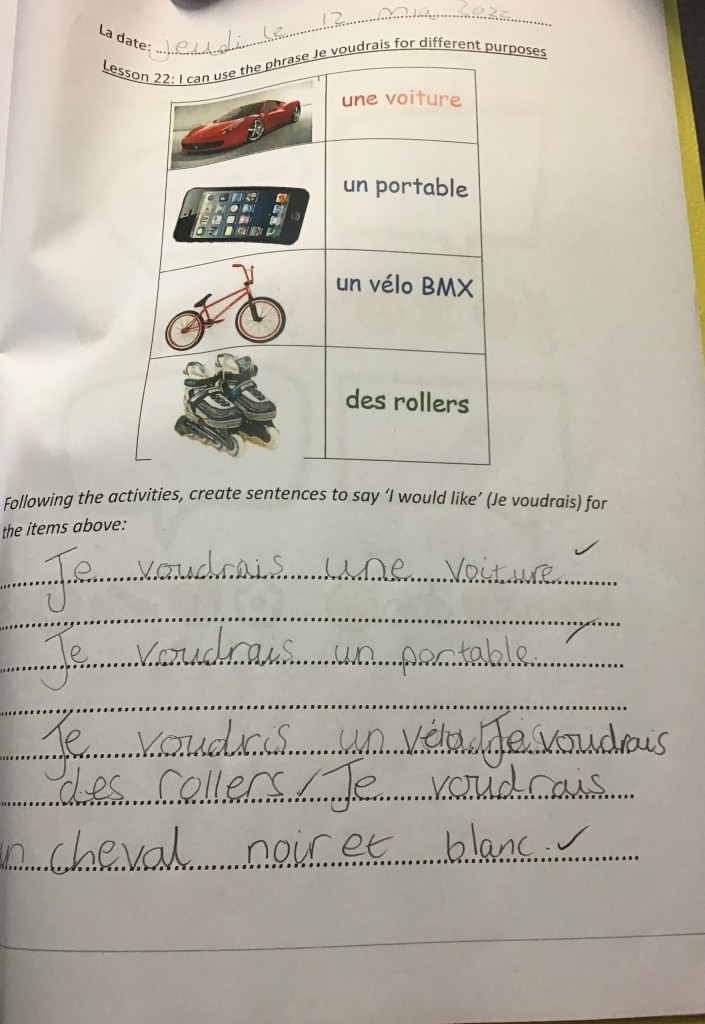 La date: jeudi le 12 mia 2022
Lesson 22: I can use the phrase Je voudrais for different purposes
une voiture
un portable
un vélo BMX
des rollers
Following the activities, create sentences to say 'I would like' (Je voudrais) for
the items above:
Je voudrais une voiture
Je voudrais un portable.
Je voudris un Je voudrais
des rollers/Je voudrais
un cheval noir et blanc.